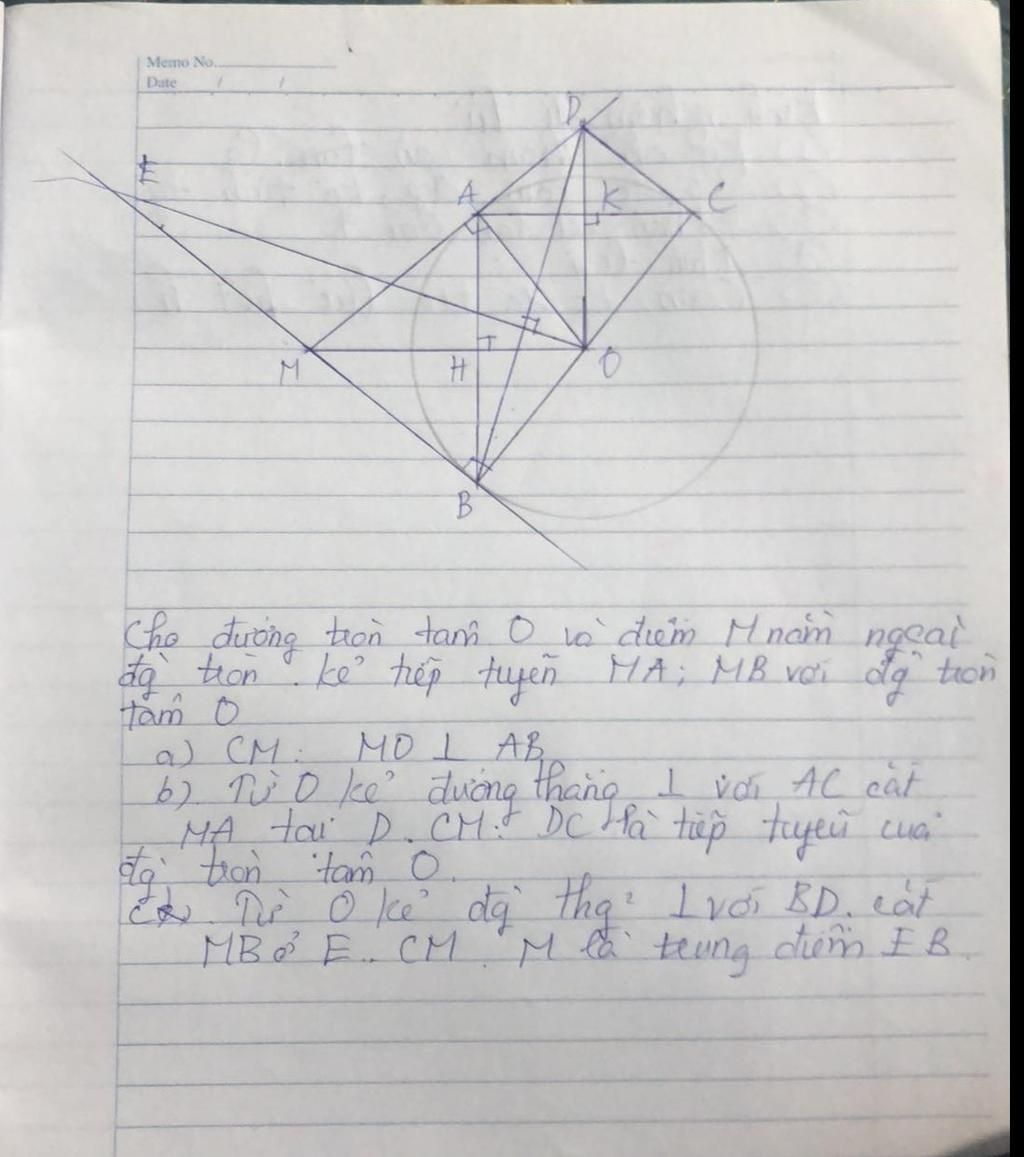 Memo No.
Date / /
D
E
A
K
C
M
H
O
B
Cho đường tròn tâm O và điểm M nằm ngoài
đg̀ tròn. kẻ tiếp tuyến MA; MB với đg̀ tròn
tâm O
a) CM: MO ⊥ AB
b) Từ O kẻ đường thẳng ⊥ với AC cắt
MA tại D. CM: DC là tiếp tuyến của
đg̀ tròn tâm O.
c) Từ O kẻ đg̀ thg̉ ⊥ với BD. cắt
MB ở E.. CM. M là trung điểm EB